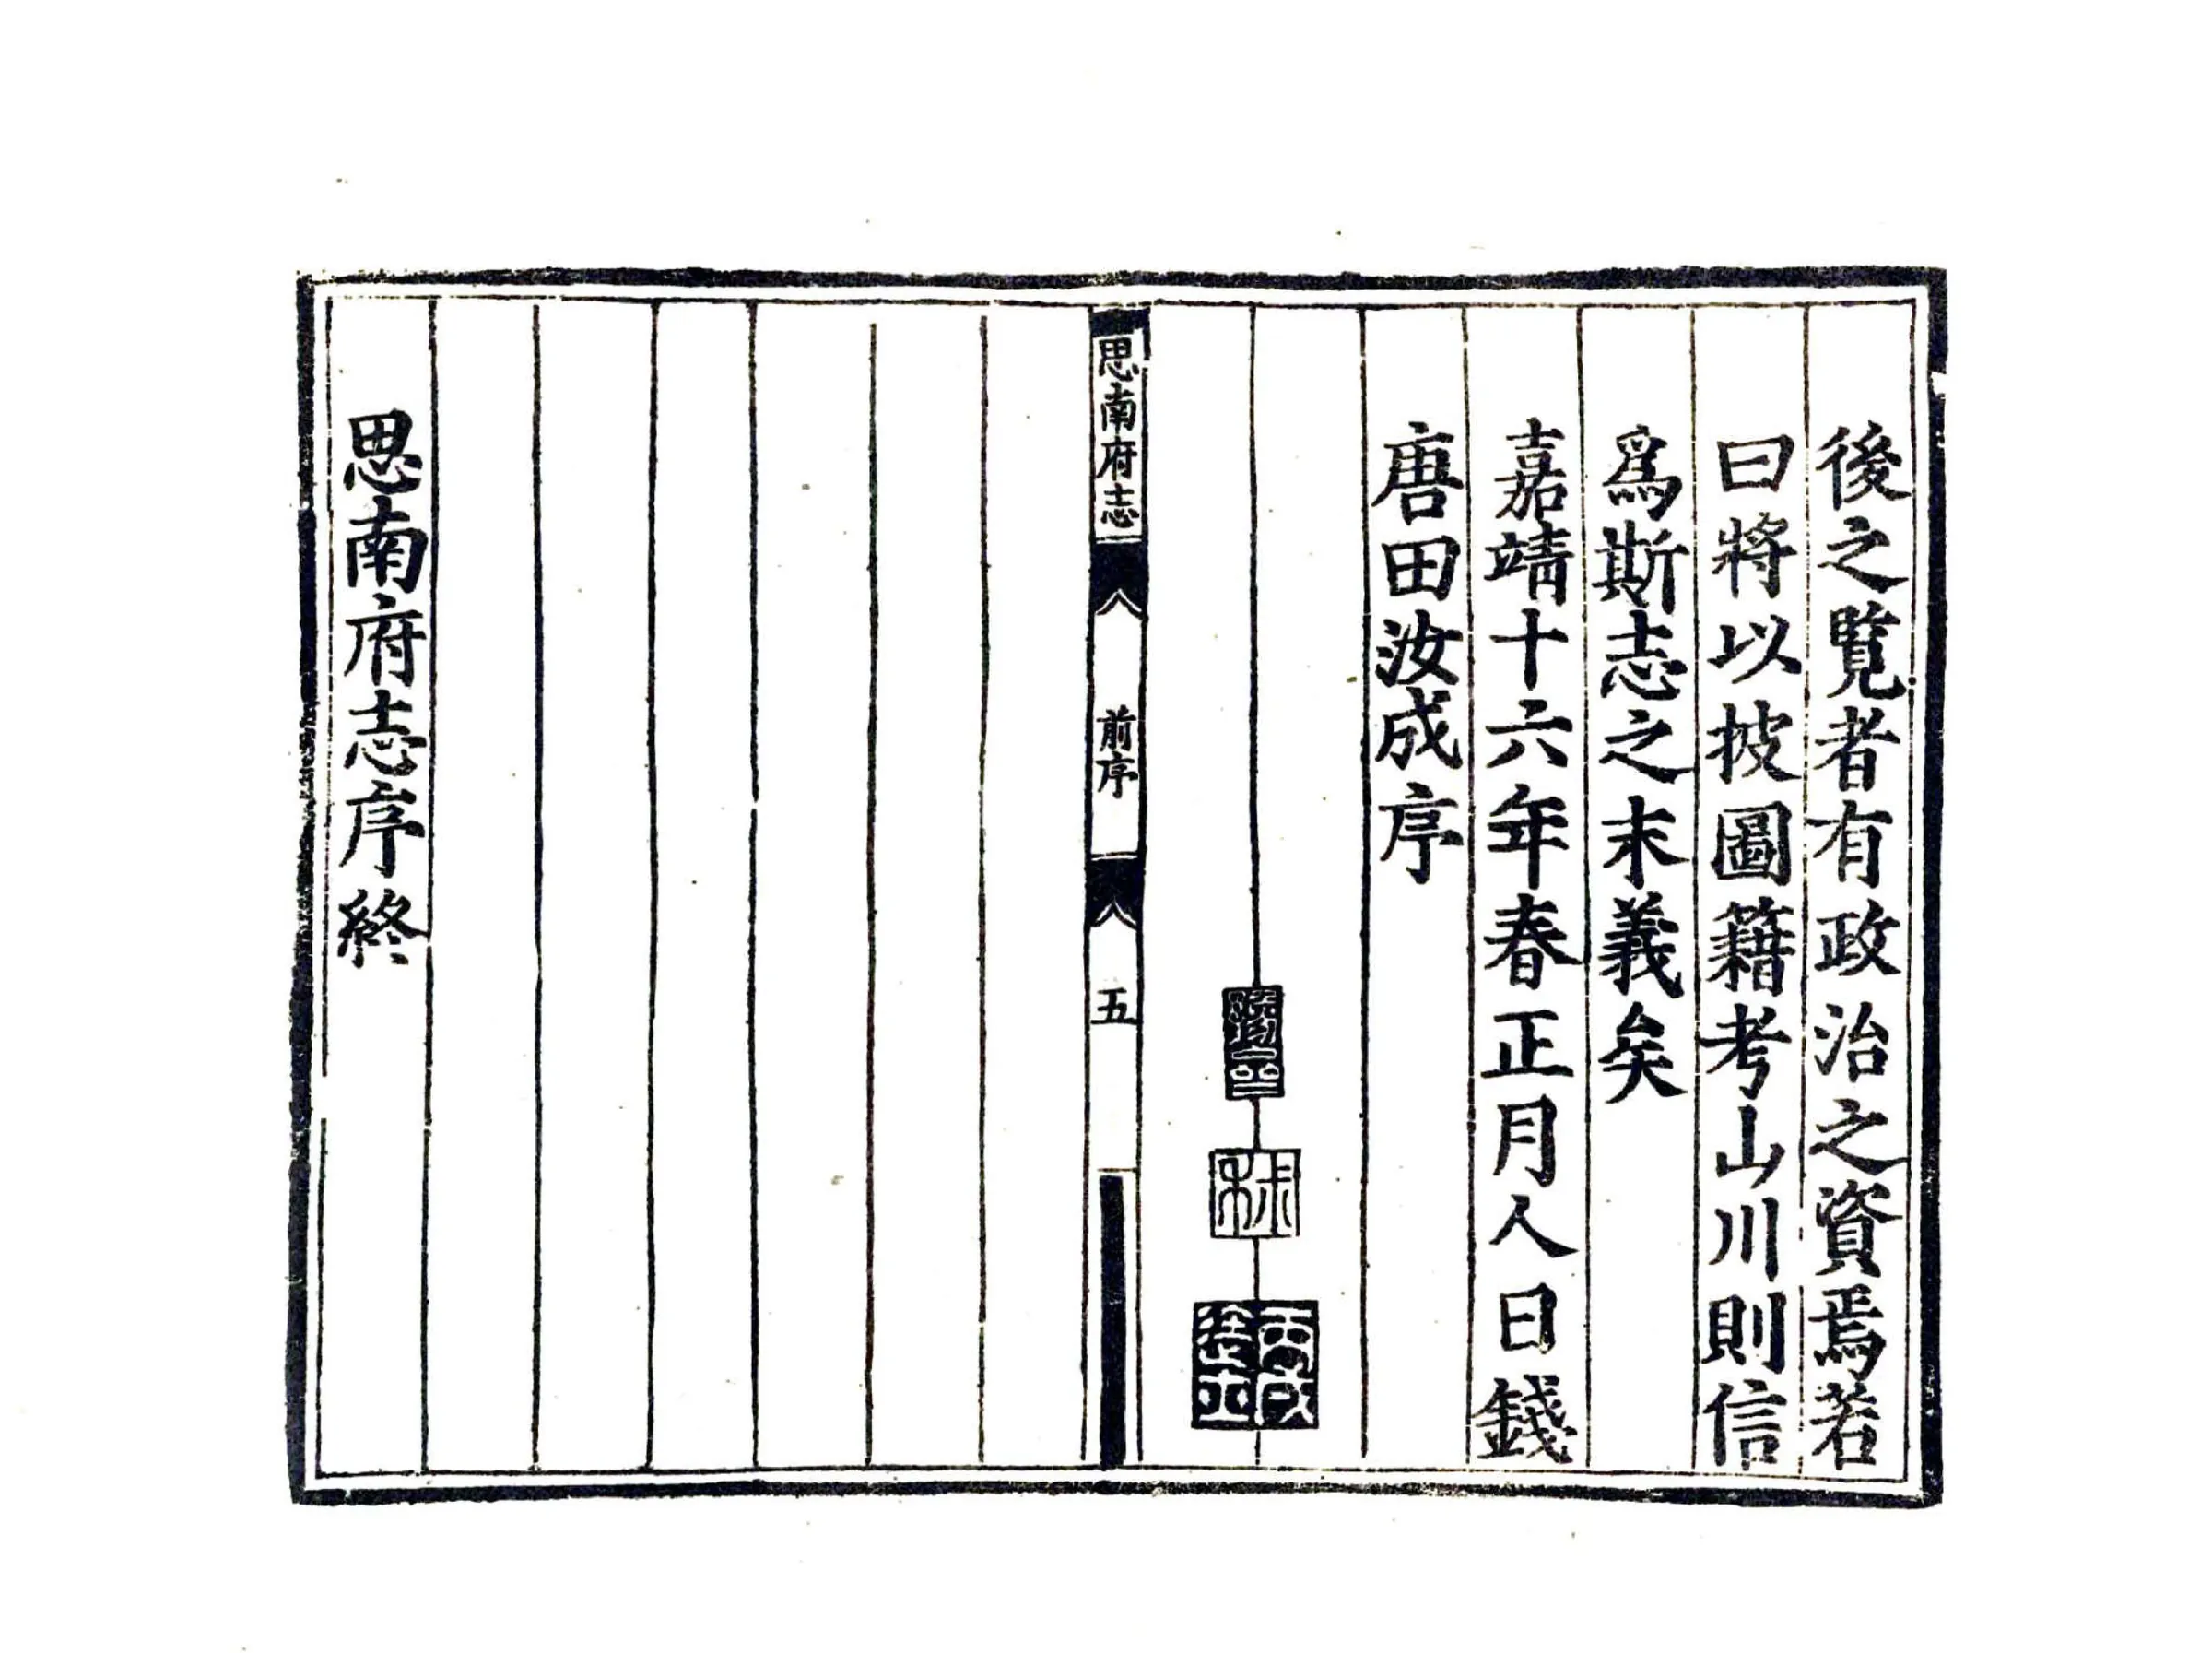 後之覽者有政治之資焉若
曰將以披圖籍考山川則信
爲斯志之末義矣
嘉靖十六年春正月人日錢
唐田汝成序
思南府志
前序
五
思南府志序終